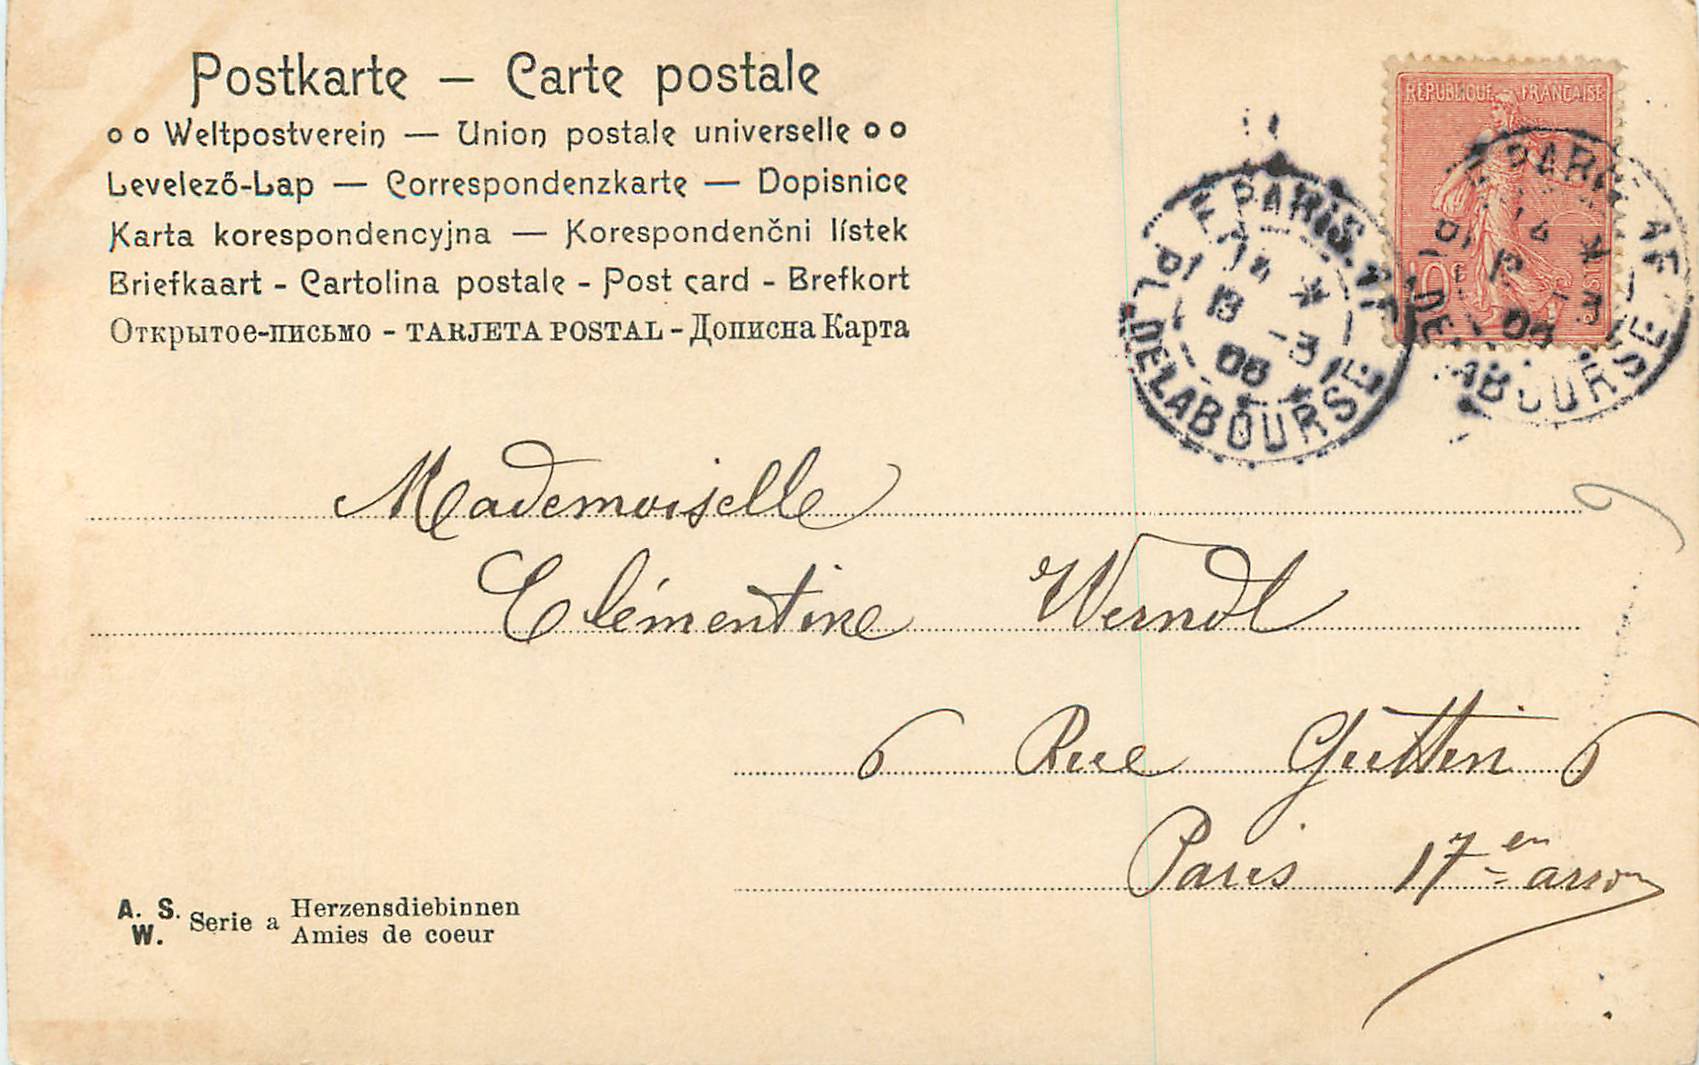 Postkarte – Carte postale
Weltpostverein — Union postale universelle
Levelező-Lap — Correspondenzkarte — Dopisnice
Karta korespondencyjna — Korespondenčni lístek
Briefkaart - Cartolina postale - Post card - Brefkort
Открытое-письмо - TARJETA POSTAL - Дописна Карта
REPUBLIQUE FRANÇAISE
PARIS
14
13 -3
06
PL. DE LA BOURSE
PARIS
14
-3
06
DE LA BOURSE
Mademoiselle
Clémentine Werndl
6 Rue Guttin 6
Paris 17en arron
A. S. W. Serie a Herzensdiebinnen
Amies de coeur